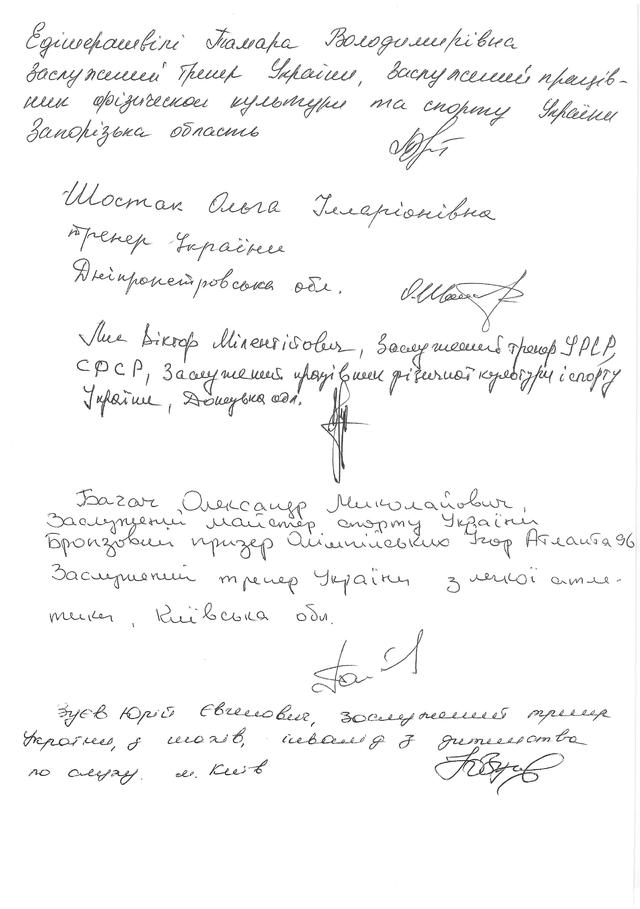 Едішерашвілі Тамара Володимирівна
Заслужений тренер України, Заслужений праців-
ник фізическої культури та спорту України
Запорізька область
Шостак Ольга Ілларіонівна
тренер України
Дніпропетровська обл.
О.Шост
Лие Віктор Мілентійович, Заслужений тренер УРСР,
СФСР, Заслужений працівник фізичної культури і спорту
України, Донецька обл.
Багач Олександр Миколайович,
Заслужений майстер спорту України
Бронзовий призер Олімпійських Ігор Атланта 96
Заслужений тренер України з легкої атле-
тики, Київська обл.
Зуєв Юрій Євгенович, заслужений тренер
України, з шахів, інвалід з дитинства
по слуху. м. Київ